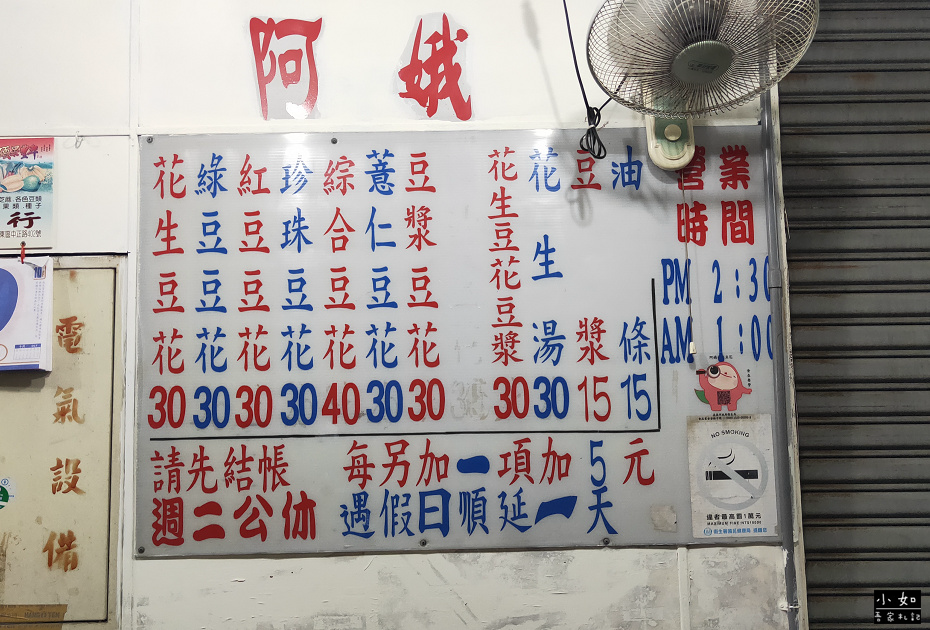 阿娥
花生豆花30
綠豆豆花30
紅豆豆花30
珍珠豆花30
綜合豆花40
薏仁豆花30
豆漿豆花30
花生豆花豆漿30
花生湯30
豆漿15
油條15
營業
時間
PM 2:30
AM 1:00
請先結帳 每另加一項加5元
週二公休 遇假日順延一天
NO SMOKING
違者最高罰1萬元
行
電氣設備
小如
吾家札記